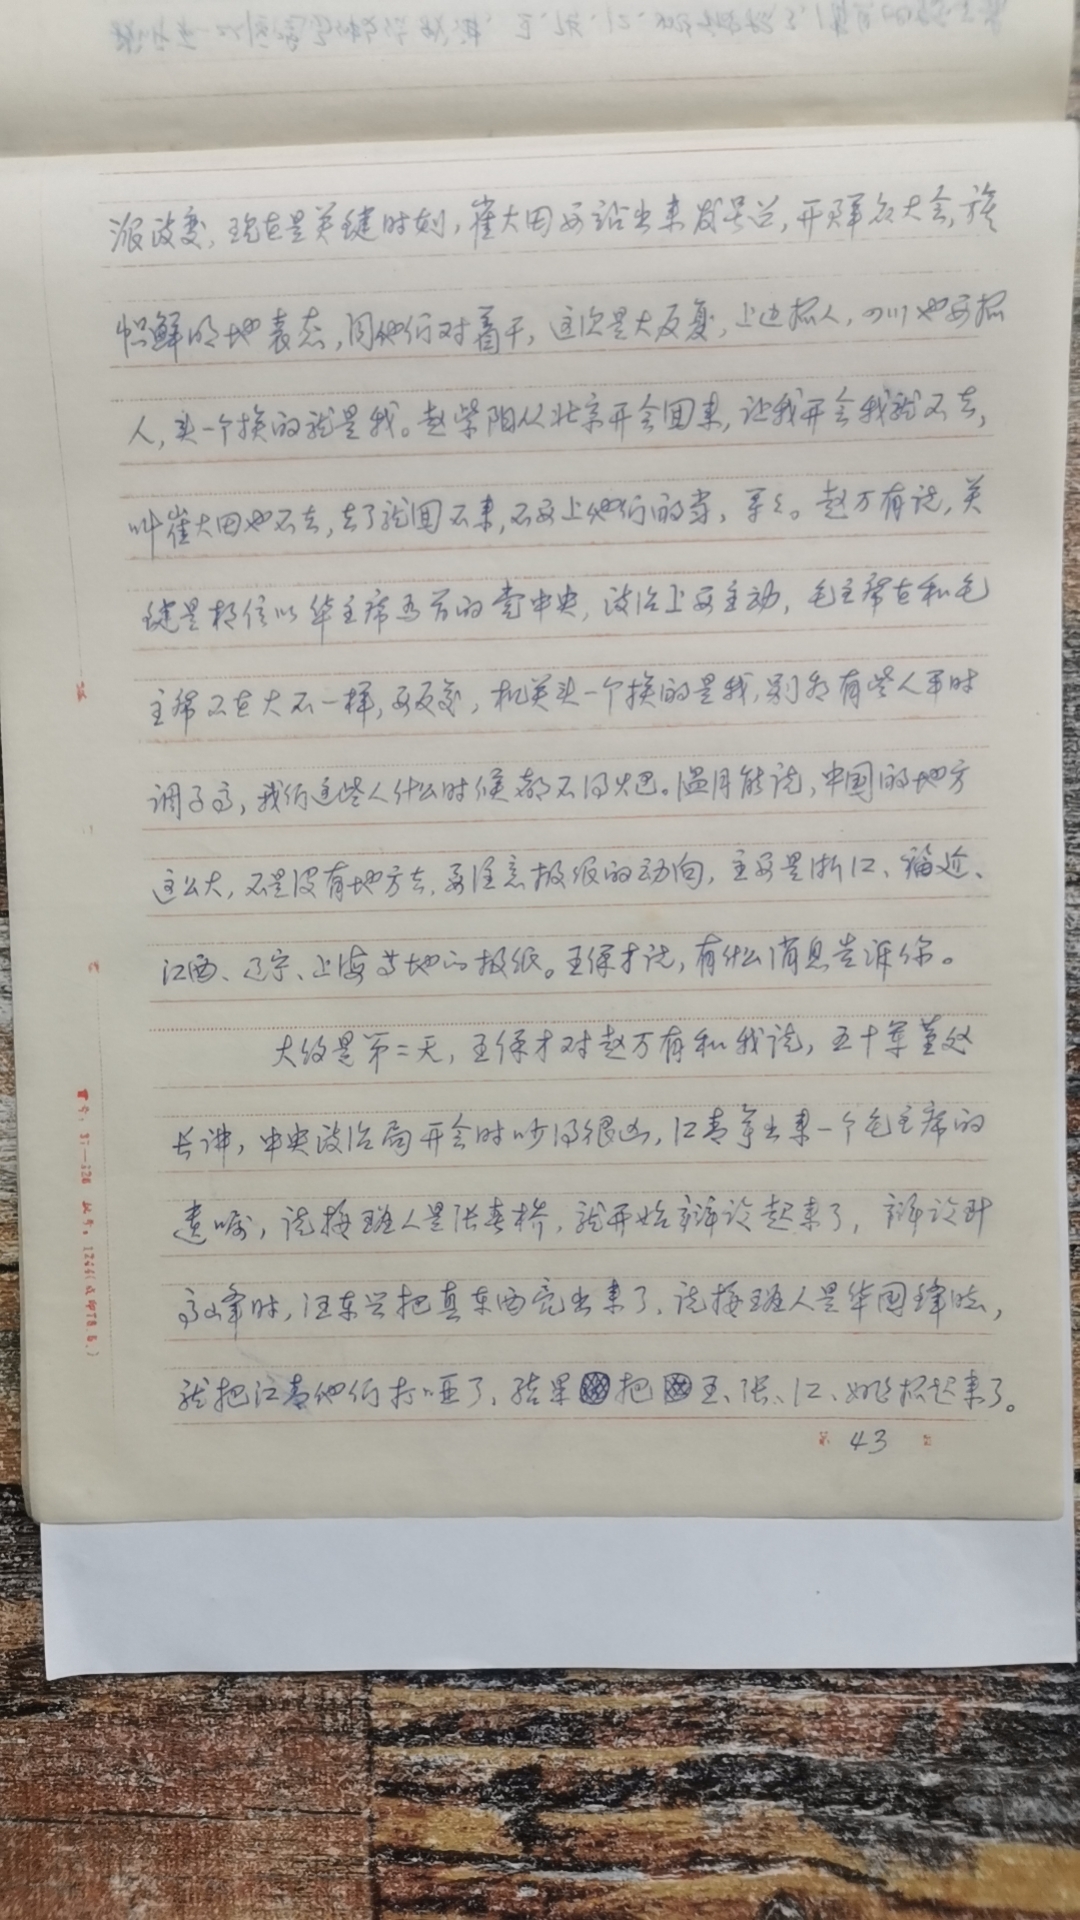 派改变，现在是关键时刻，崔大田要站出来发号召，开群众大会，旗
帜鲜明地表态，同他们对着干，这次是大反复，上边抓人，四川也要抓
人，头一个换的就是我。赵紫阳从北京开会回来，让我开会我就不去，
叫崔大田也不去，去了就回不来，不要上他们的当，等等。赵万有说，关
键是相信以华主席为首的党中央，政治上要主动，毛主席在和毛
主席不在大不一样，要反复，机关头一个换的是我，别看有些人平时
调子高，我们这些人什么时候都不得火巴。温月能说，中国的地方
这么大，不是没有地方去，要注意报纸的动向，主要是浙江、福建、
江西、辽宁、上海等地的报纸。王保才说，有什么消息告诉你。
大约是第二天，王保才对赵万有和我说，五十军董处
长讲，中央政治局开会时吵得很凶，江青拿出来一个毛主席的
遗嘱，说接班人是张春桥，就开始辩论起来了，辩论到
高峰时，汪东兴把真东西亮出来了，说接班人是华国锋啦，
就把江青他们打哑了，结果把王、张、江、姚抓起来了。
第 43